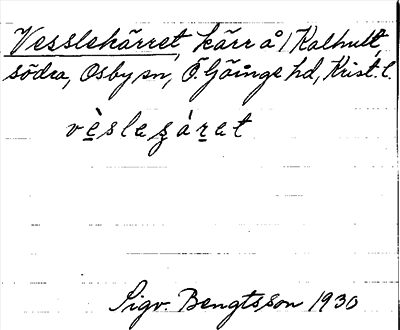 Vesslekärret, kärr å / Kalhult,
södra, Osby sn, Ö. Göinge hd, Krist. l.
vèslesáret
Sigv. Bengtsson 1930